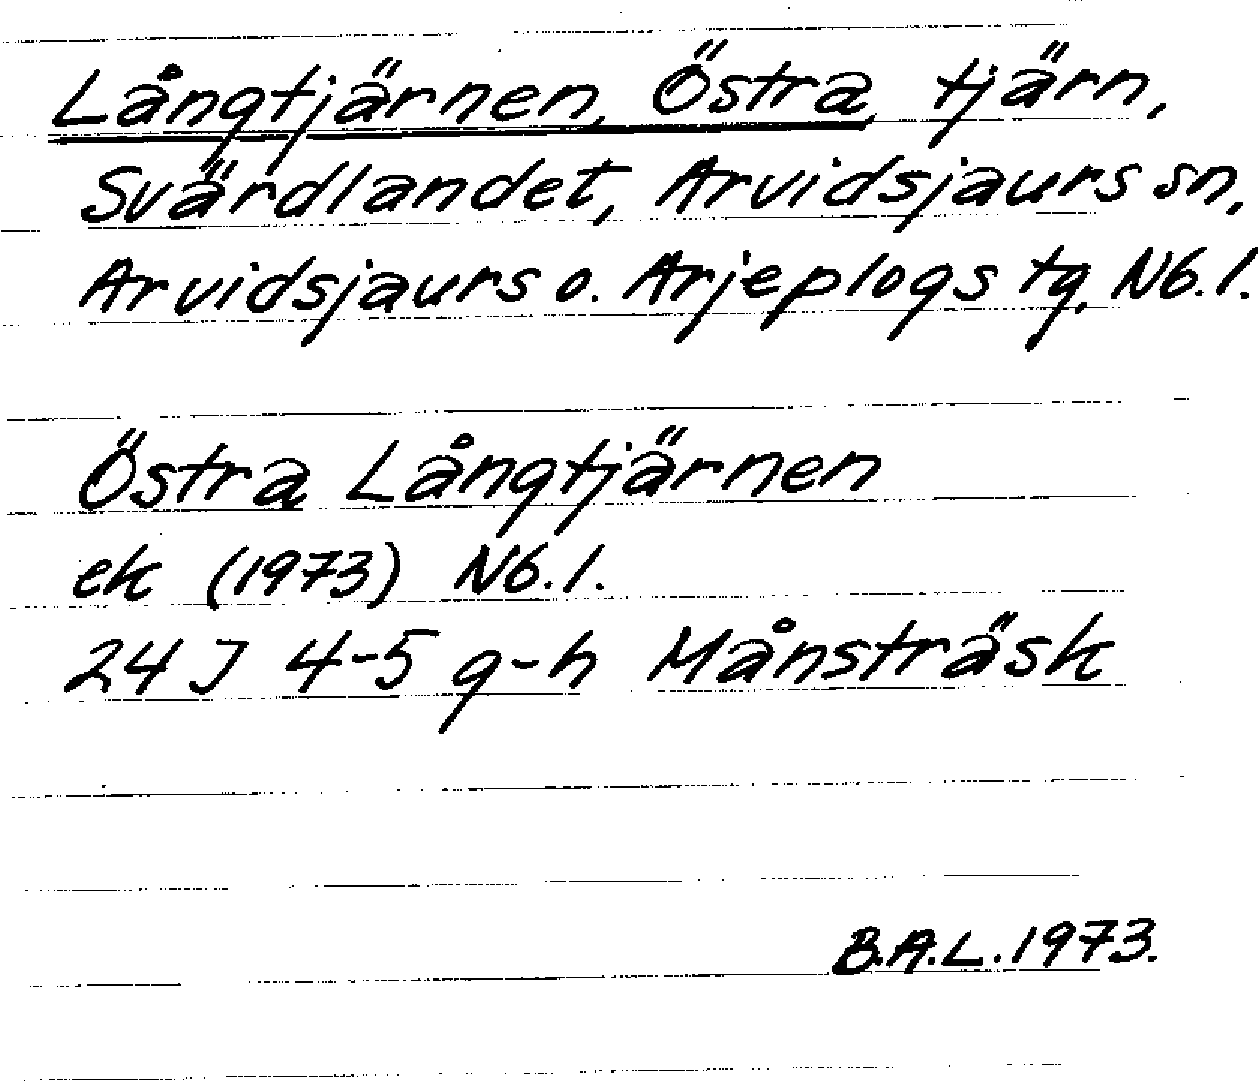 Långtjärnen, Östra, tjärn,
Svärdlandet, Arvidsjaurs sn,
Arvidsjaurs o. Arjeplogs tg, Nb. l.
Östra Långtjärnen
ek (1973) Nb. l.
24 J 4-5 g-h Månsträsk
B.A.L. 1973.